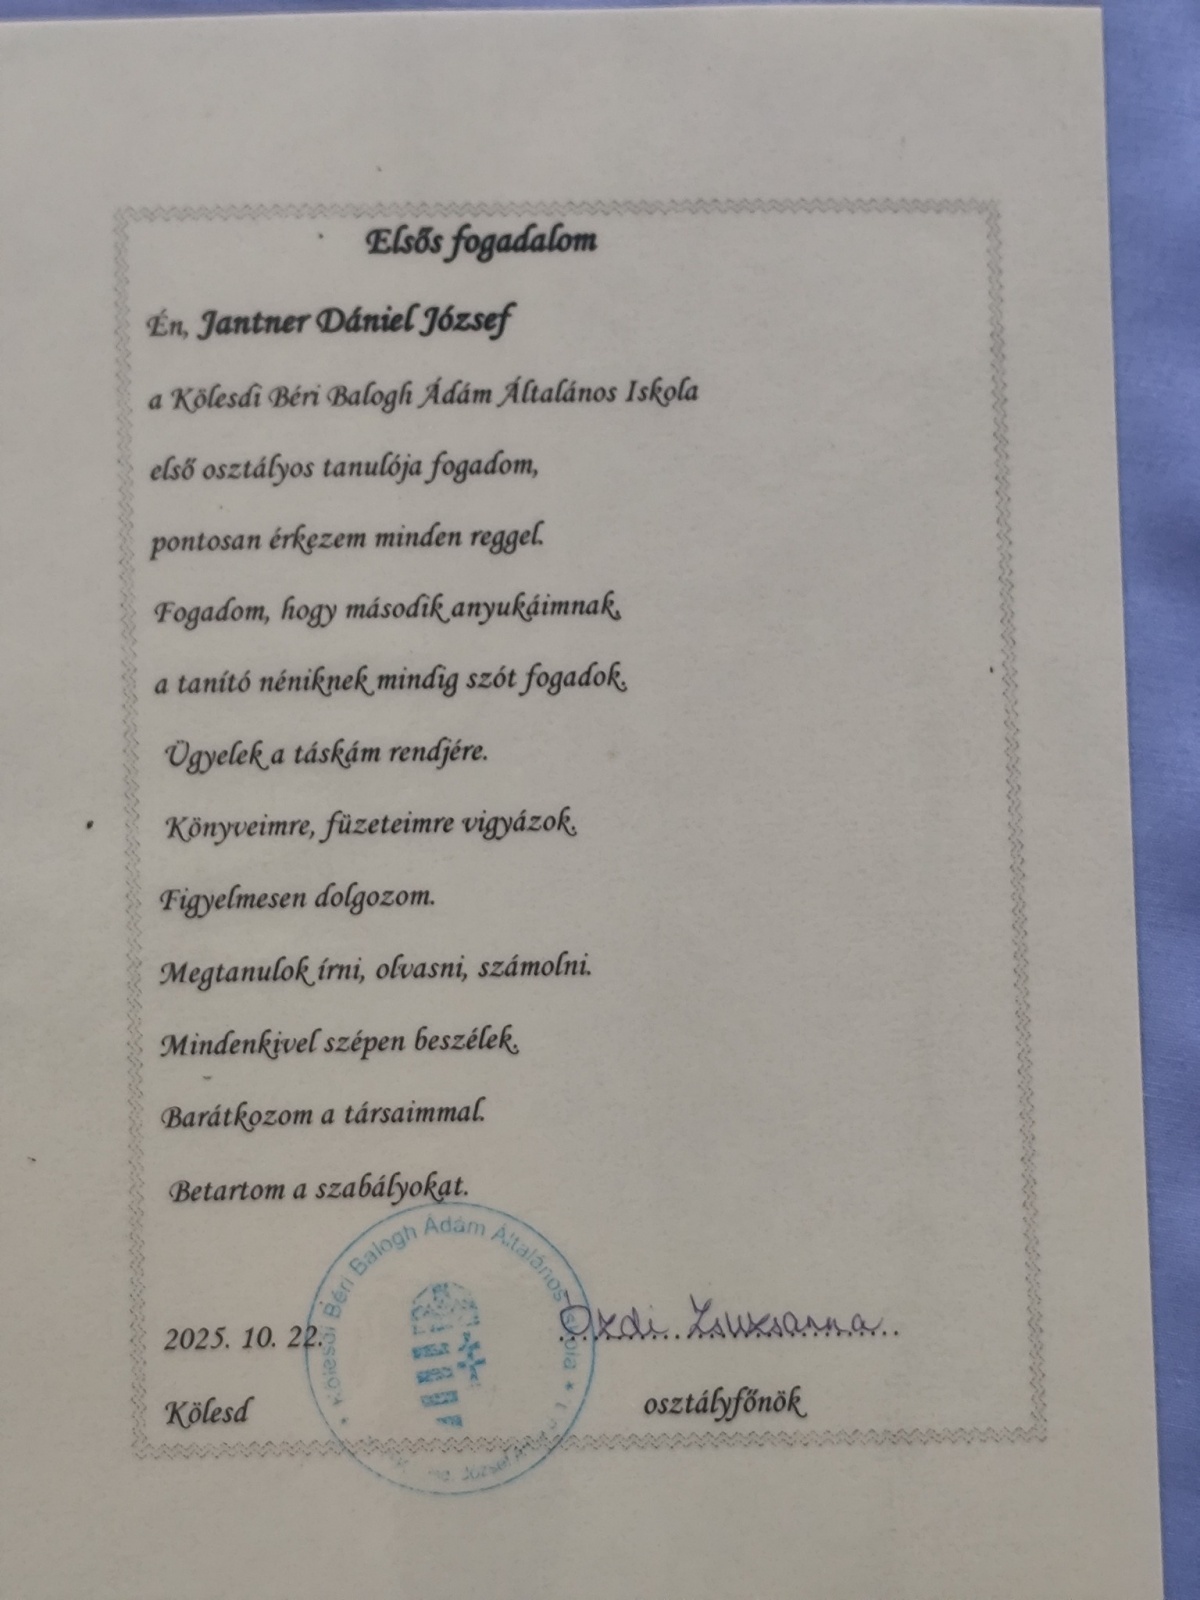 Elsős fogadalom
Én, Jantner Dániel József
a Kölesdi Béri Balogh Ádám Általános Iskola
első osztályos tanulója fogadom,
pontosan érkezem minden reggel.
Fogadom, hogy második anyukáimnak,
a tanító néniknek mindig szót fogadok.
Ügyelek a táskám rendjére.
Könyveimre, füzeteimre vigyázok.
Figyelmesen dolgozom.
Megtanulok írni, olvasni, számolni.
Mindenkivel szépen beszélek.
Barátkozom a társaimmal.
Betartom a szabályokat.
Kölesdi Béri Balogh Ádám Általános Iskola
József
Özdi Zsuzsanna
2025. 10. 22.
Kölesd
osztályfőnök